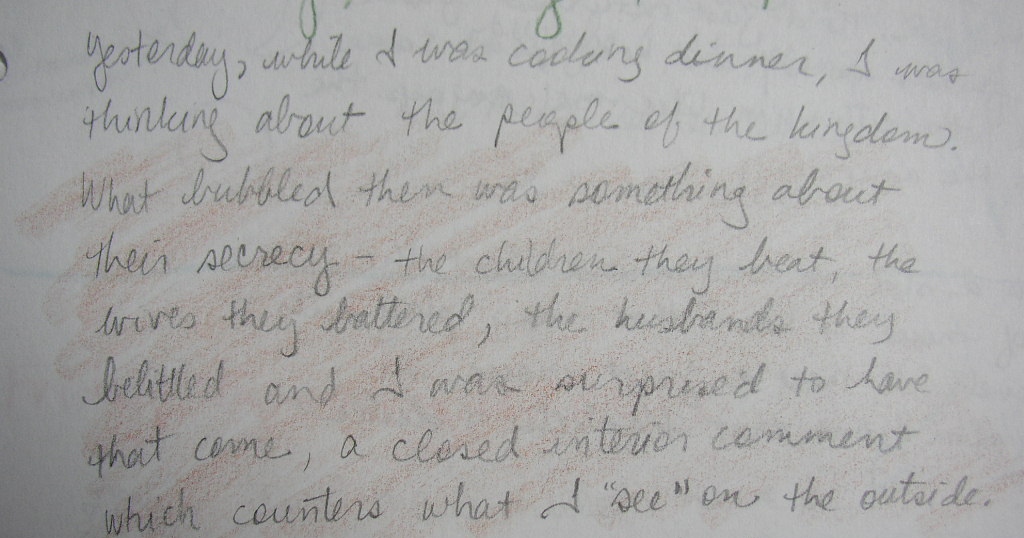 Yesterday, while I was cooking dinner, I was
thinking about the people of the kingdom.
What bubbled then was something about
their secrecy - the children they beat, the
wives they battered, the husbands they
belittled and I was surprised to have
that come, a closed interior comment
which counters what I "see" on the outside.